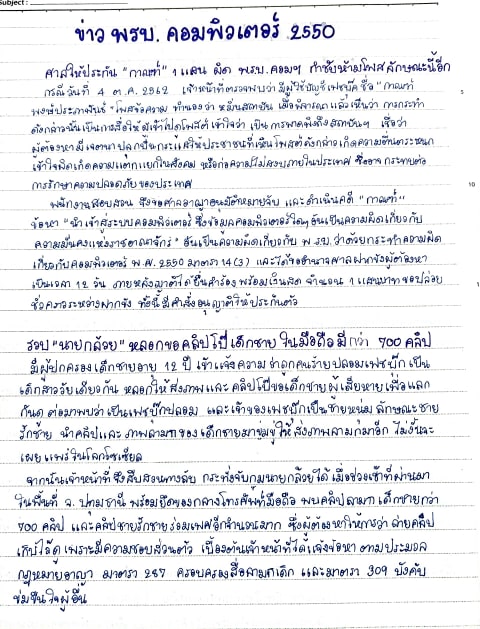 Subject :
ข่าว พรบ. คอมพิวเตอร์ 2550
ศาลให้ประกัน "กาณฑ์" 1 แสน ผิด พรบ.คอมฯ กำชับห้ามโพสลักษณะนี้อีก
กรณีวันที่ 4 ต.ค. 2562 เจ้าหน้าที่ตรวจพบว่า มีผู้ใช้บัญชีเฟซบุ๊ค ชื่อ "กาณฑ์
พงษ์ประภาพันธ์" โพสข้อความ ทำนองว่า หมิ่นสถาบัน เมื่อพิจารณาแล้วเห็นว่า การกระทำ
ดังกล่าวนั้นเป็นการสื่อให้ผู้เข้าไปดูโพสต์เข้าใจว่า เป็นการพาดพิงถึงสถาบันฯ เชื่อว่า
ผู้ต้องหามีเจตนาปลุกปั่นกระแสให้ประชาชนที่เห็นโพสต์ดังกล่าวเกิดความตื่นตระหนก
เข้าใจผิดเกิดความแตกแยกในสังคม หรือก่อความไม่สงบภายในประเทศ ซึ่งอาจกระทบต่อ
การรักษาความปลอดภัยของประเทศ
พนักงานสอบสวน จึงขอศาลอาญาอนุมัติหมายจับ และดำเนินคดี "กาณฑ์"
ข้อหา "นำเข้าสู่ระบบคอมพิวเตอร์ ซึ่งข้อมูลคอมพิวเตอร์ใดๆ อันเป็นความผิดเกี่ยวกับ
ความมั่นคงแห่งราชอาณาจักร์" อันเป็นความผิดเกี่ยวกับ พ.รบ.ว่าด้วยกระทำความผิด
เกี่ยวกับคอมพิวเตอร์ พ.ศ. 2550 มาตรา 14(3) และได้ขออำนาจศาลฝากขังผู้ต้องหา
เป็นเวลา 12 วัน ภายหลังญาติได้ยื่นคำร้อง พร้อมเงินสด จำนวน 1 แสนบาท ขอปล่อย
ชั่วคราวระหว่างฝากขัง ทั้งนี้มีคำสั่งอนุญาติให้ประกันตัว
รวบ "นายกล้วย" หลอกขอคลิปโป๊เด็กชาย ในมือถือมีกว่า 700 คลิป
มีผู้ปกครองเด็กชายอายุ 12 ปี เข้าแจ้งความว่าถูกคนร้ายปลอมเฟซบุ๊กเป็น
เด็กสาววัยเดียวกัน หลอกให้ส่งภาพและคลิปโป๊ของเด็กชายผู้เสียหายเพื่อแลก
กันดู ต่อมาพบว่าเป็นเฟซบุ๊กปลอม และเจ้าของเฟซบุ๊กเป็นชายหนุ่มลักษณะชาย
รักชาย นำคลิปและภาพลามกของเด็กชายมาขู่ขู่ให้ส่งภาพลามกมาอีก ไม่งั้นจะ
เผยแพร่ในโลกโซเชียล
จากนั้นเจ้าหน้าที่จึงสืบสวนทางลับ กระทั่งจับกุมนายกล้วยได้ เมื่อช่วงเช้าที่ผ่านมา
ในพื้นที่ จ. ปทุมธานี พร้อมยึดของกลางโทรศัพท์มือถือ พบคลิปลามก เด็กชายกว่า
700 คลิป และคลิปชายรักชายร่วมเพศอีกจำนวนมาก ซึ่งผู้ต้องหาให้การว่า ถ่ายคลิป
เก็บไว้ดู เพราะมีความชอบส่วนตัว เบื้องต้นเจ้าหน้าที่ได้แจ้งข้อหา ตามประมวล
กฎหมายอาญา มาตรา 287 ครอบครองสื่อลามกเด็ก และมาตรา 309 บังคับ
ข่มขืนใจผู้อื่น